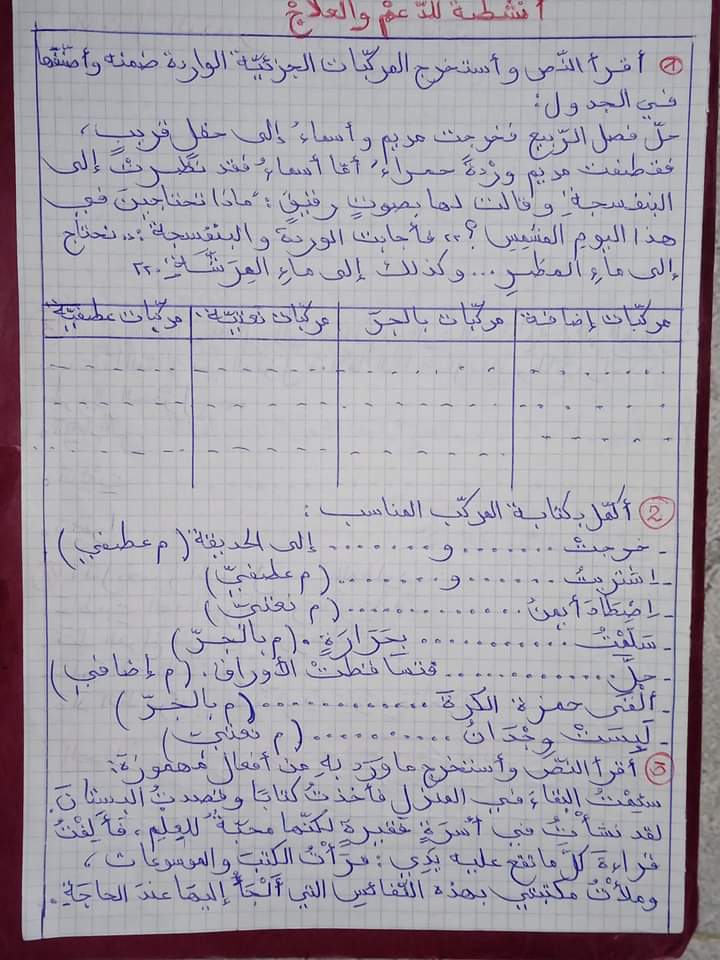 أنشطة للدّعم والعلاج
1 أقرأ النّص وأستخرج المركّبات الجزئيّة الواردة ضمنه وأصنّفها
في الجدول:
حلّ فصل الرّبيع فخرجت مريم وأسماءُ إلى حقل قريب،
فقطفت مريم ورْدةً حمراءَ أمّا أسماءُ فقد نَظَرتْ إلى
البنفسجةِ وقالت لها بصوتٍ رقيقٍ: "ماذا تحتاجينَ في
هذا اليوم المشمس؟" فأجابت الوردة والبنفسجة: "نحتاج
إلى ماءِ المطرِ... وكذلك إلى ماءِ المِرَشَّةِ."
مركّبات إضافة مركّبات بالجرّ مركّبات نعتيّة مركّبات عطفيّة
2 أكمّل بكتابة المركّب المناسب:
- خرجتْ ....... و ....... إلى الحديقة (م عطفي)
- اشتريتُ ....... و ....... (م عطفيّ)
- اِصْطَادَ أيمنُ ............. (م نعتيّ)
- سَلّمْتُ ............ بِحَرَارَةٍ. (م بالجرّ)
- حلّ ............. فتساقطتْ الأوراق. (م إضافي)
- ألقى حمزة الكرةَ ............. (م بالجرّ)
- لَبِسَتْ وِجْدَانُ .......... (م نعتي)
3 أقرأ النّصّ وأستخرج ما ورد بهِ مِنْ أفعال مَهموزة:
سئِمْتُ البقاءَ في المنزل فأخذتُ كتابًا وقصدتُ البستانَ.
لقد نشأْتُ في أسرَةٍ فقيرةٍ لكنّها محبّةٌ للعِلْمِ، فَأَلِفْتُ
قراءةَ كلّ ما تقع عليه يَدِي: قرأتُ الكتبَ والموسوعات،
وملأتُ مكتبتي بهذه النّفائسِ التي أَلْجَأُ إليهَا عندَ الحاجَةِ.